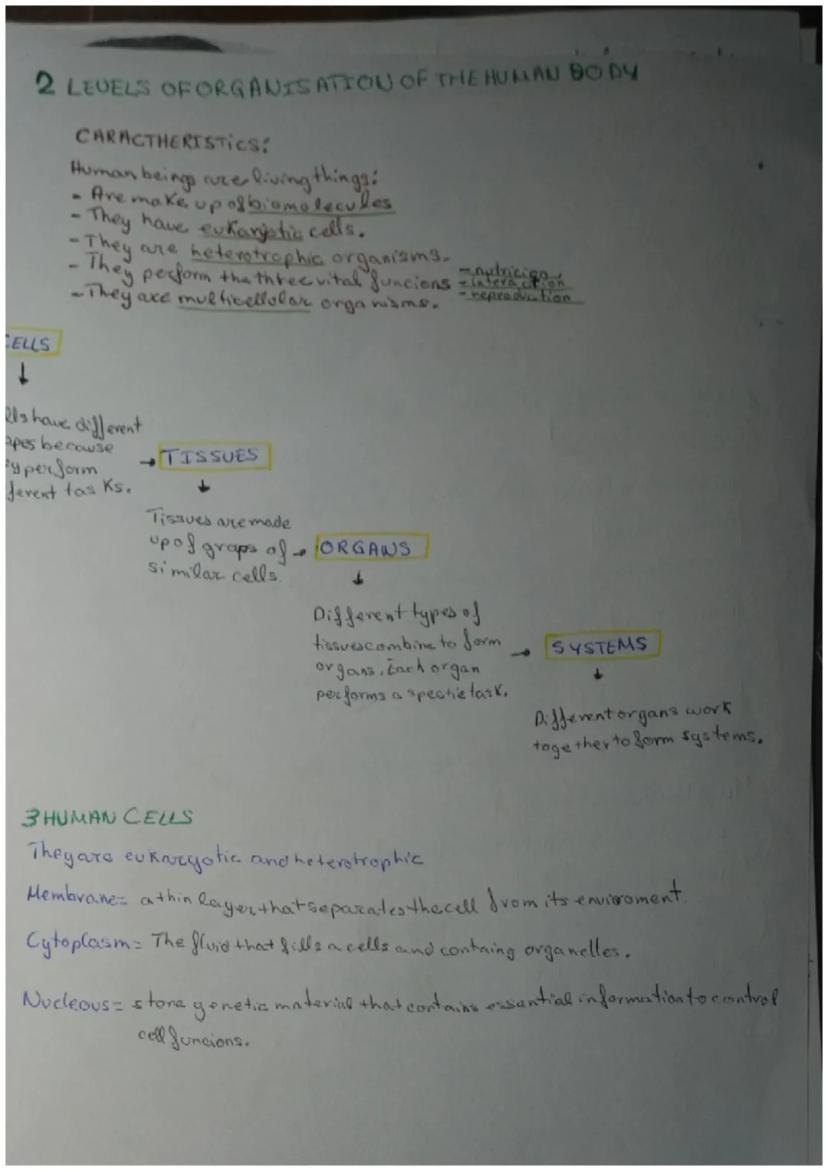 2 LEVELS OF ORGANISATION OF THE HUMAN BODY
CARACTHERISTICS:
Human beings are living things:
- Are make up of biomolecules
- They have eukaryotic cells.
- They are heterotrophic organisms.
- They perform the three vital funcions
- nutricion
- interaction
- reproduction
- They are multicellular organisms.
CELLS
↓
lls have different
apes because
ey perform
ferent tasks.
→ TISSUES
↓
Tissues are made
up of graps of
similar cells.
→ ORGANS
↓
Different types of
tissues combine to form
organs. Each organ
performs a spectie task.
→ SYSTEMS
↓
Different organs work
together to form systems.
3 HUMAN CELLS
They are eukaryotic and heterotrophic
Membrane = a thin layer that separates the cell from its enviroment.
Cytoplasm = The fluid that fills a cells and containg organelles.
Nucleous = store genetic material that contains essential information to control
cell funcions.